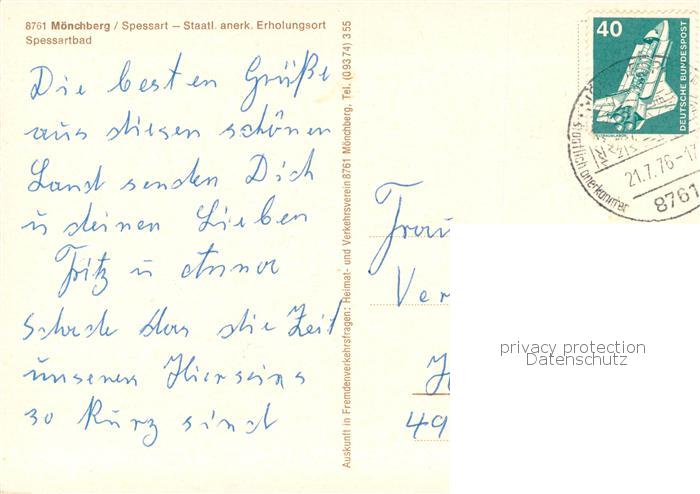 8761 Mönchberg / Spessart – Staatl. anerk. Erholungsort
Spessartbad
Die besten Grüße
aus diesen schönen
Land senden Dich
u deinen Lieben
Fritz u Anna
Schade das die Zeit
unseren Hierseins
so kurz sind
Auskunft in Fremdenverkehrsfragen: Heimat- und Verkehrsverein 8761 Mönchberg, Tel. (09374) 355
40
DEUTSCHE BUNDESPOST
Staatlich anerkannter
21.7.76-17
8761
Frau
Ver
49
privacy protection
Datenschutz